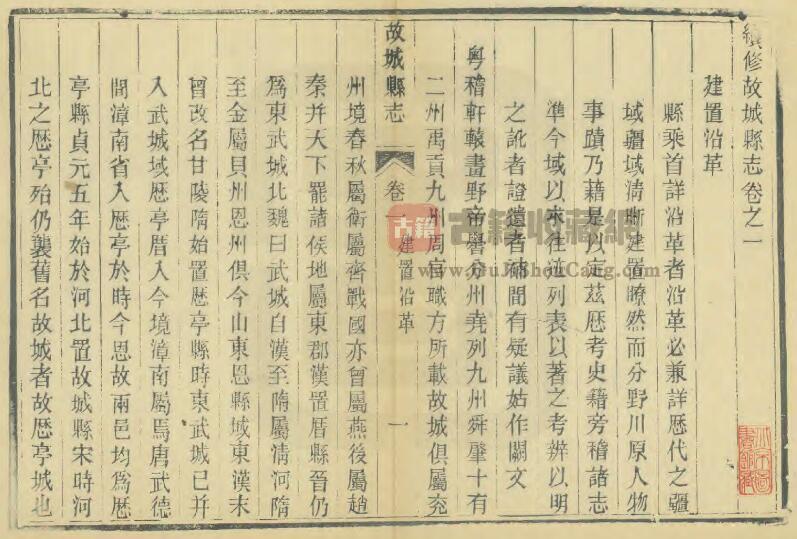 續修故城縣志卷之一
建置沿革
縣乘首詳沿革者沿革必兼詳歷代之疆
域疆域清晰建置瞭然而分野川原人物
事蹟乃藉是以定茲歷考史籍旁稽諸志
準今域以求往迹列表以著之考辨以明
之訛者證遺者補間有疑議姑作闕文
粵稽軒轅畫野帝嚳分州堯列九州舜肇十有
二州禹貢九州周官職方所載故城俱屬兗
故城縣志 卷一 建置沿革 一
州境春秋屬衛屬齊戰國亦曾屬燕後屬趙
秦并天下罷諸侯地屬東郡漢置厝縣晉仍
爲東武城北魏曰武城自漢至隋屬清河隋
至金屬貝州恩州俱今山東恩縣域東漢末
曾改名甘陵隋始置歷亭縣時東武城已并
入武城域歷亭厝入今境漳南屬焉唐武德
間漳南省入歷亭於時今恩故兩邑均爲歷
亭縣貞元五年始於河北置故城縣宋時河
北之歷亭殆仍襲舊名故城者故歷亭城也
古籍收藏網
www.GuJiShouCang.com